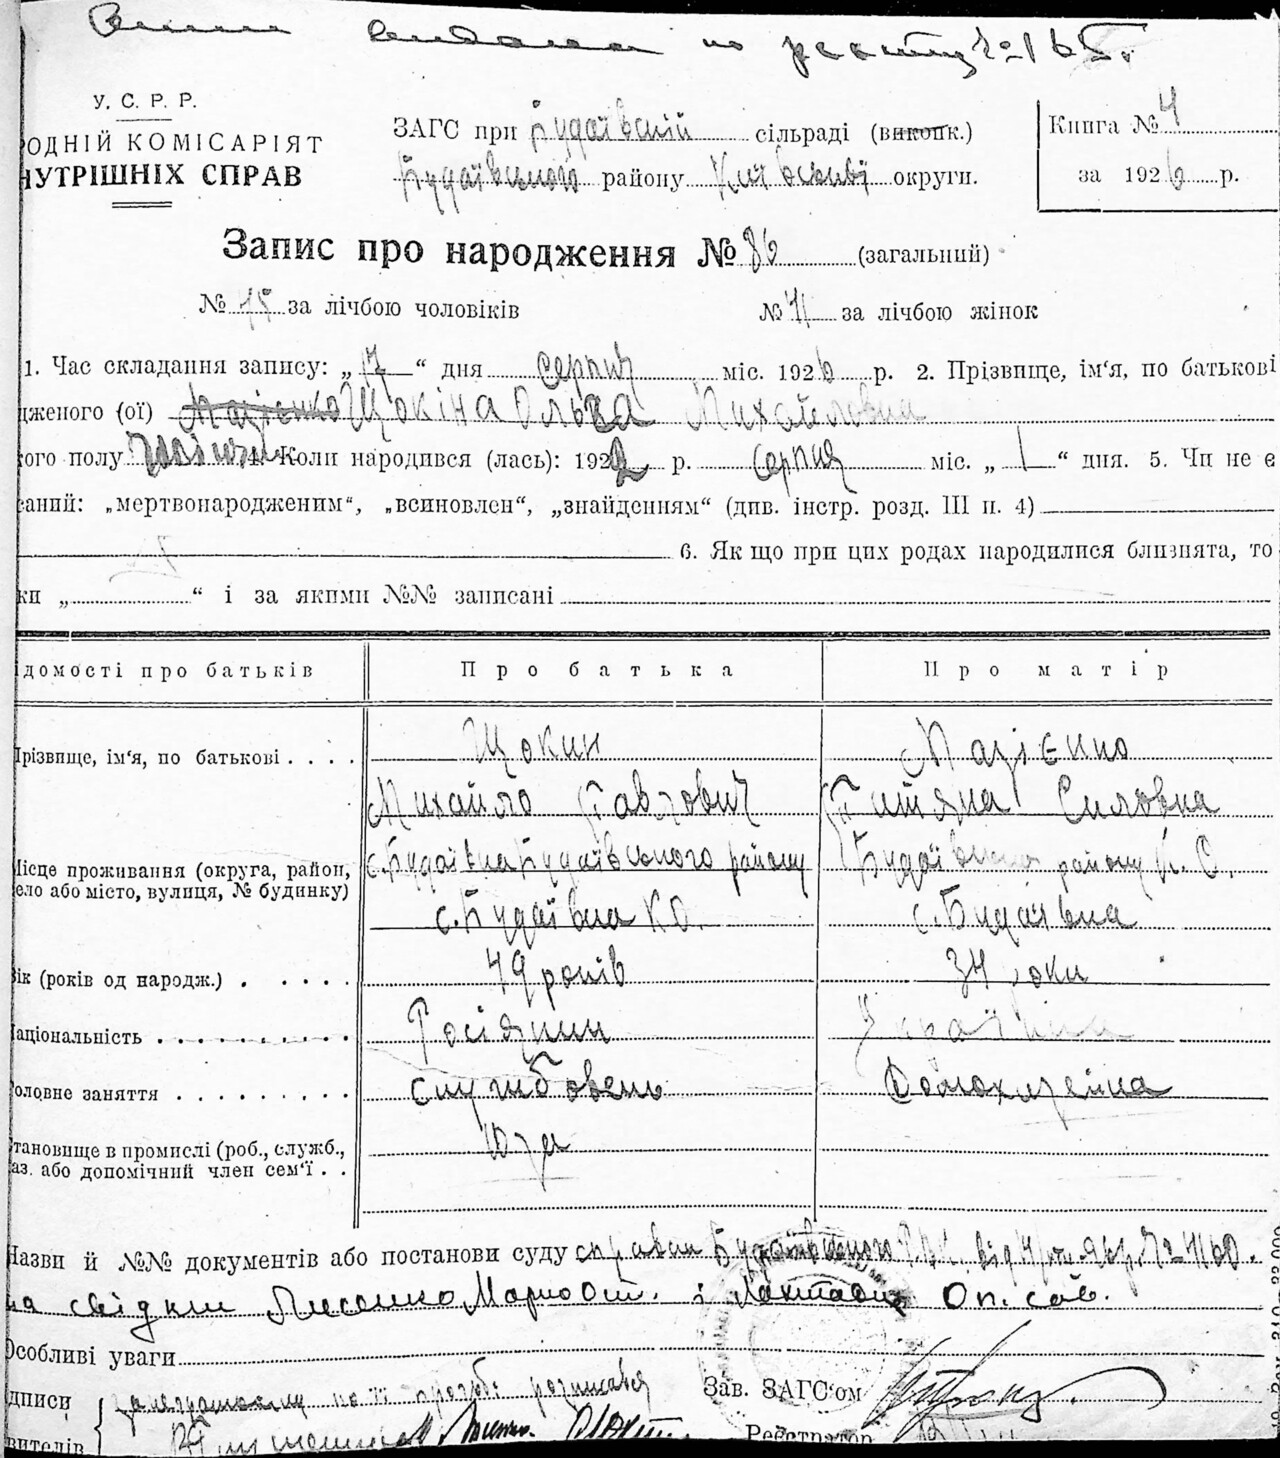 видана по реєстру № 165.
У. С. Р. Р.
ОДНІЙ КОМІСАРІЯТ
НУТРІШНІХ СПРАВ
ЗАГС при Будаївській сільраді (виконк.)
Будаївського району Київської округи.
Книга № 4
за 1926 р.
Запис про народження № 86 (загальний)
№ 45 за лічбою чоловіків
№ 41 за лічбою жінок
1. Час складання запису: „17“ дня серпня міс. 1926 р. 2. Прізвище, ім'я, по батькові
дженого (ої) Мацієнко Щокіна Ольга Михайловна
ого полу жіноч. 4. Коли народився (лась): 1922 р. серпня міс. „1“ дня. 5. Чи не є
саний: „мертвонародженим“, „всиновлен“, „знайденням“ (див. інстр. розд. III п. 4)
6. Як що при цих родах народилися близнята, то
ки „ “ і за якими №№ записані
ідомості про батьків
Про батька
Про матір
Прізвище, ім'я, по батькові
Щокин
Мацієнко
Михайло Павлович
Титяна Силовна
Місце проживання (округа, район,
село або місто, вулиця, № будинку)
с. Будаївка Будаївського району
Будаївського району К. О.
с. Будаївка К О.
с. Будаївка
Вік (років од народж.)
49 років
34 роки
Національність
Росіянин
Українка
Головне заняття
службовець
Домохазяйка
Становище в промислі (роб., служб.,
аз. або допомічний член сем'ї
Назви й №№ документів або постанови суду справка Будаївського Р.В.К. від № 4160.
на свідки Лисенко Марко і Оп. сов.
Особливі уваги
дписи
явителів
за неграмотну по її прозьбі розписався
Зав. ЗАГС'ом
Реєстратор